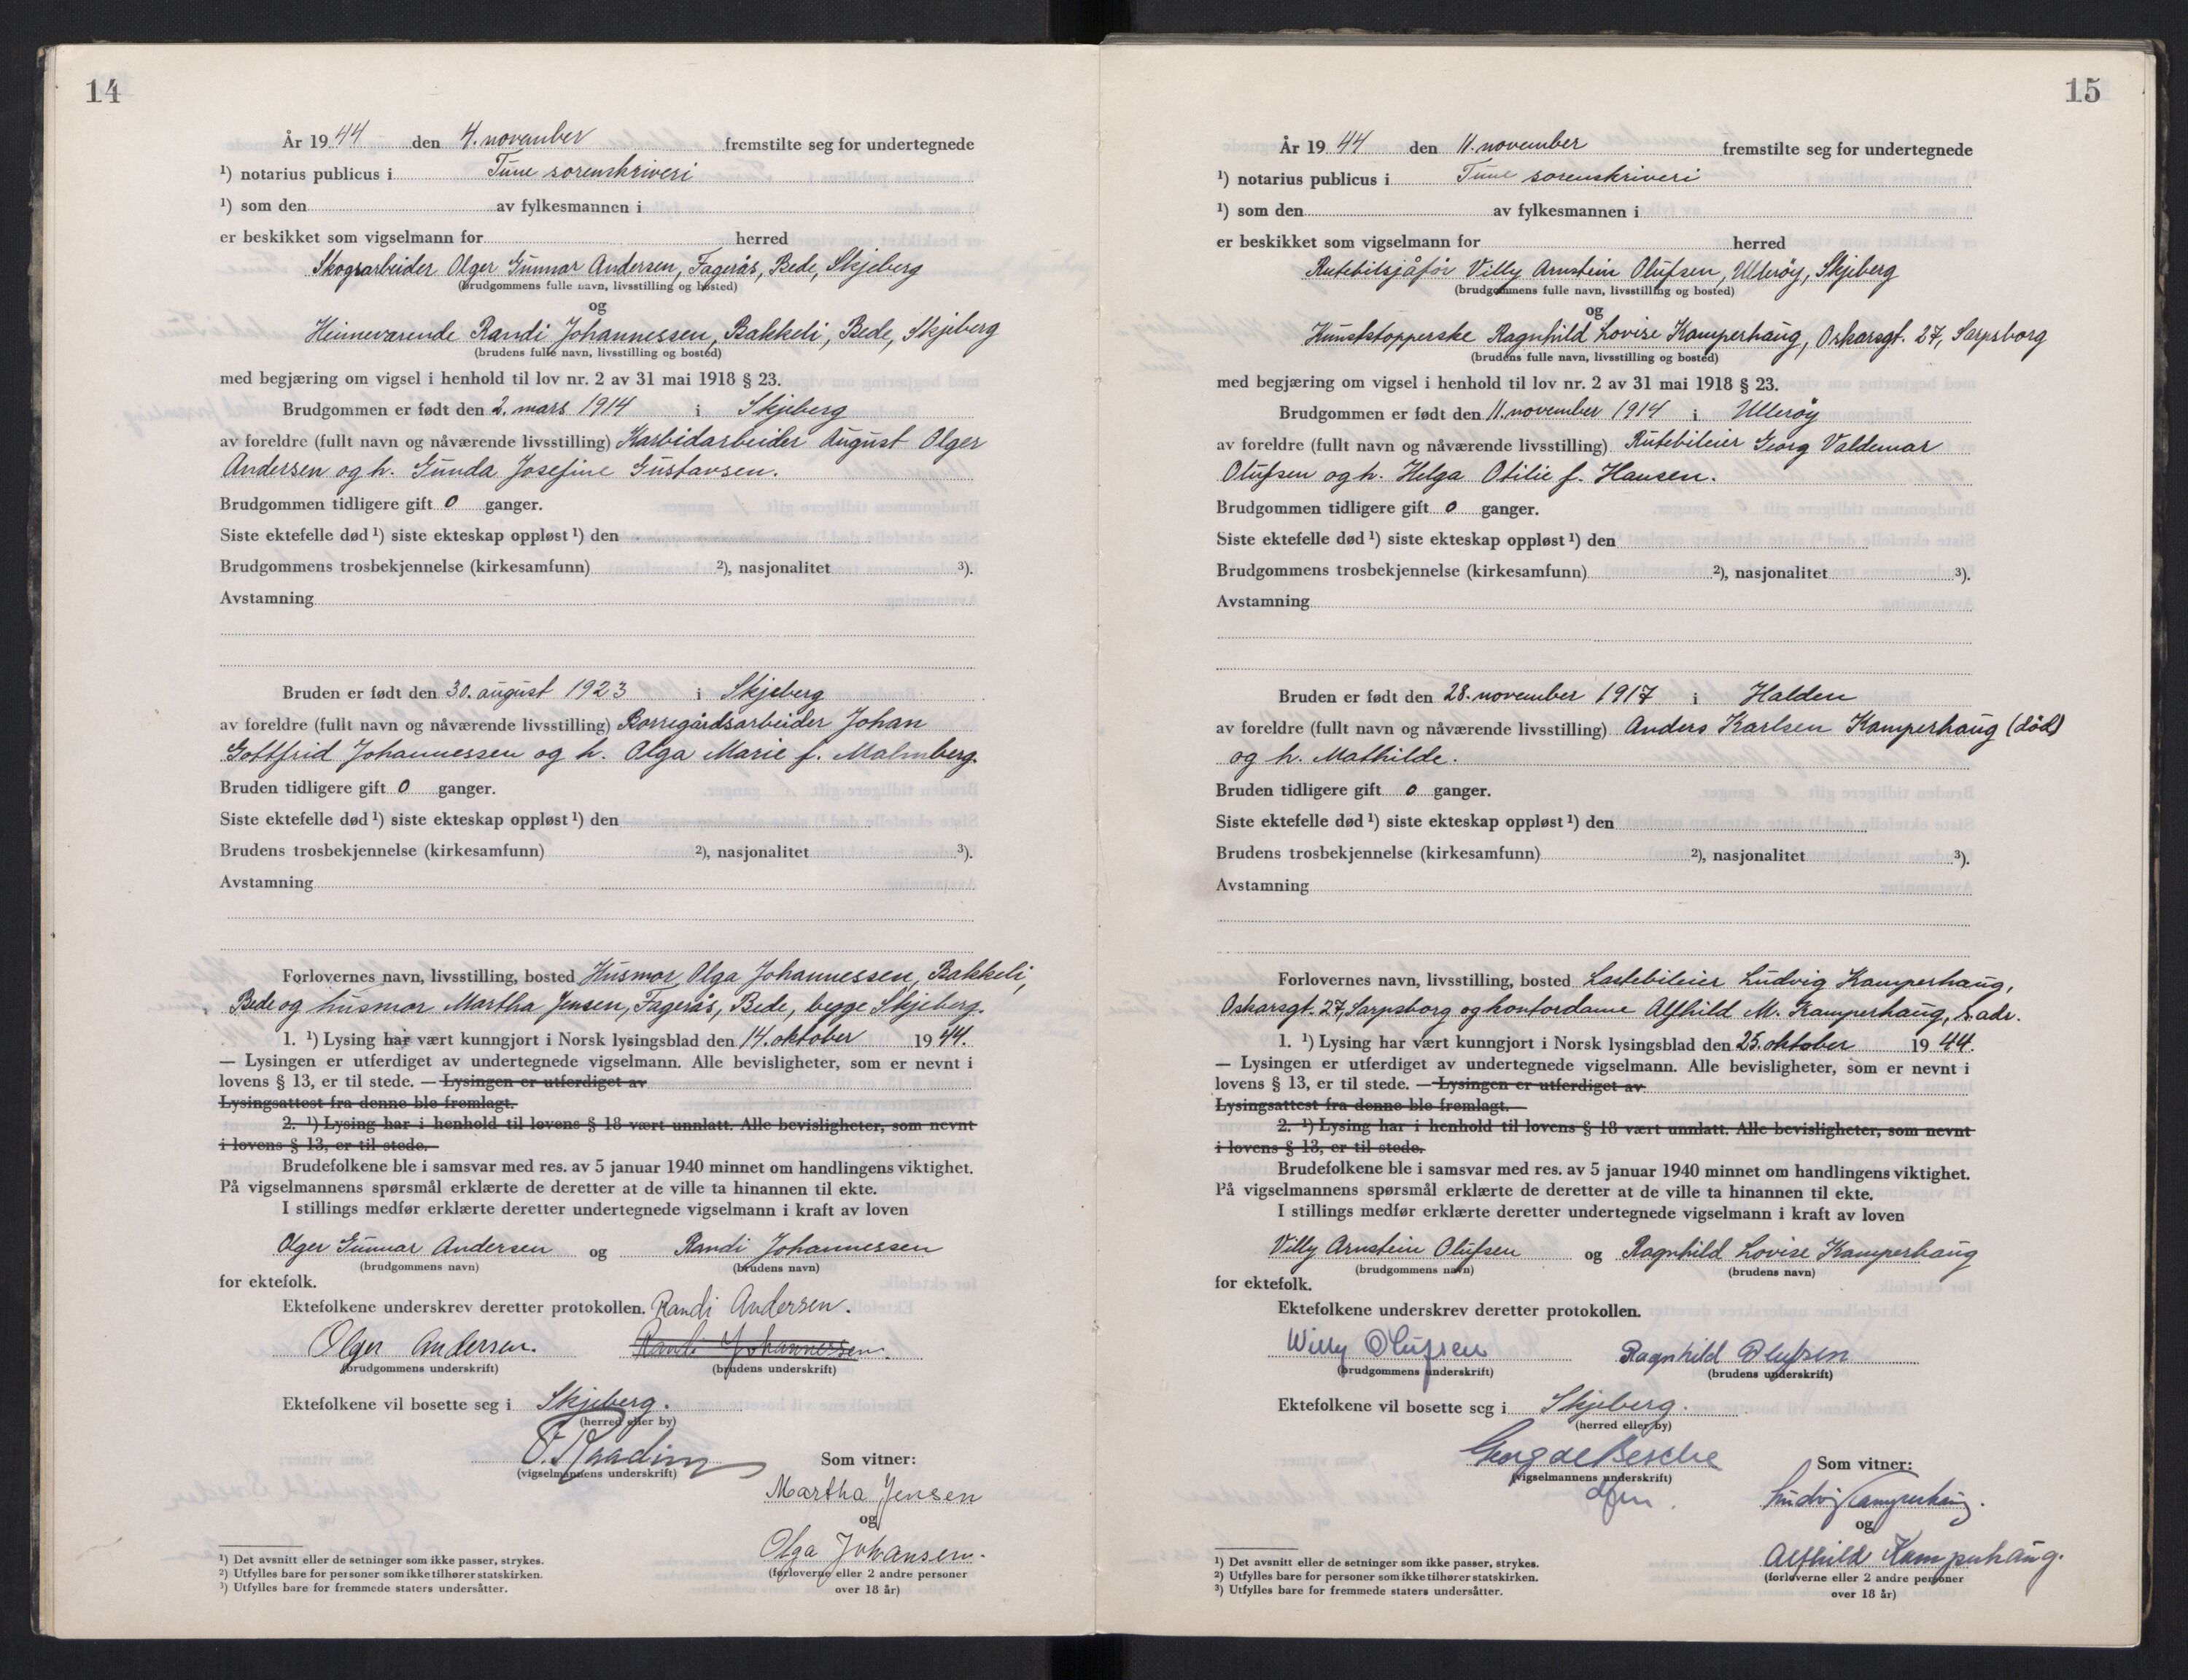 14
År 1944 den 4. november fremstilte seg for undertegnede
¹) notarius publicus i Tune sorenskriveri
¹) som den av fylkesmannen i
er beskikket som vigselmann for herred
Skogsarbeider Olger Gunnar Andersen, Fagerås, Bede, Skjeberg
(brudgommens fulle navn, livsstilling og bosted)
og
Heimeværende Randi Johannessen, Bakkeli, Bede, Skjeberg
(brudens fulle navn, livsstilling og bosted)
med begjæring om vigsel i henhold til lov nr. 2 av 31 mai 1918 § 23.
Brudgommen er født den 2. mars 1914 i Skjeberg
av foreldre (fullt navn og nåværende livsstilling) Karbidarbeider August Olger
Andersen og h. Gunda Josefine Gustavsen.
Brudgommen tidligere gift 0 ganger.
Siste ektefelle død ¹) siste ekteskap oppløst ¹) den
Brudgommens trosbekjennelse (kirkesamfunn) ²), nasjonalitet ³).
Avstamning
Bruden er født den 30. august 1923 i Skjeberg
av foreldre (fullt navn og nåværende livsstilling) Borregårdsarbeider Johan
Gottfrid Johannessen og h. Olga Marie f. Malmberg.
Bruden tidligere gift 0 ganger.
Siste ektefelle død ¹) siste ekteskap oppløst ¹) den
Brudens trosbekjennelse (kirkesamfunn) ²), nasjonalitet ³).
Avstamning
Forlovernes navn, livsstilling, bosted Husmor Olga Johannessen, Bakkeli,
Bede og husmor Martha Jensen, Fagerås, Bede, begge Skjeberg.
1. ¹) Lysing har vært kunngjort i Norsk lysingsblad den 14. oktober 1944.
— Lysingen er utferdiget av undertegnede vigselmann. Alle bevisligheter, som er nevnt i
lovens § 13, er til stede. — Lysingen er utferdiget av
Lysingsattest fra denne ble fremlagt.
2. ¹) Lysing har i henhold til lovens § 18 vært unnlatt. Alle bevisligheter, som nevnt
i lovens § 13, er til stede.
Brudefolkene ble i samsvar med res. av 5 januar 1940 minnet om handlingens viktighet.
På vigselmannens spørsmål erklærte de deretter at de ville ta hinannen til ekte.
I stillings medfør erklærte deretter undertegnede vigselmann i kraft av loven
Olger Gunnar Andersen og Randi Johannessen
(brudgommens navn) (brudens navn)
for ektefolk.
Ektefolkene underskrev deretter protokollen. Randi Andersen.
Olger Andersen. Randi Johannessen.
(brudgommens underskrift) (brudens underskrift)
Ektefolkene vil bosette seg i Skjeberg.
(herred eller by)
(vigselmannens underskrift)
Som vitner:
Martha Jensen
og
Olga Johansen.
(forloverne eller 2 andre personer
over 18 år)
¹) Det avsnitt eller de setninger som ikke passer, strykes.
²) Utfylles bare for personer som ikke tilhører statskirken.
³) Utfylles bare for fremmede staters undersåtter.
15
År 1944 den 11. november fremstilte seg for undertegnede
¹) notarius publicus i Tune sorenskriveri
¹) som den av fylkesmannen i
er beskikket som vigselmann for herred
Rutebilsjåfør Villy Arnstein Olufsen, Ullerøy, Skjeberg
(brudgommens fulle navn, livsstilling og bosted)
og
Kunststopperske Ragnhild Lovise Kamperhaug, Oskarsgt. 27, Sarpsborg
(brudens fulle navn, livsstilling og bosted)
med begjæring om vigsel i henhold til lov nr. 2 av 31 mai 1918 § 23.
Brudgommen er født den 11. november 1914 i Ullerøy
av foreldre (fullt navn og nåværende livsstilling) Rutebileier Georg Valdemar
Olufsen og h. Helga Otilie f. Hansen.
Brudgommen tidligere gift 0 ganger.
Siste ektefelle død ¹) siste ekteskap oppløst ¹) den
Brudgommens trosbekjennelse (kirkesamfunn) ²), nasjonalitet ³).
Avstamning
Bruden er født den 28. november 1917 i Halden
av foreldre (fullt navn og nåværende livsstilling) Anders Karlsen Kamperhaug (død)
og h. Mathilde.
Bruden tidligere gift 0 ganger.
Siste ektefelle død ¹) siste ekteskap oppløst ¹) den
Brudens trosbekjennelse (kirkesamfunn) ²), nasjonalitet ³).
Avstamning
Forlovernes navn, livsstilling, bosted Lastebileier Ludvig Kamperhaug,
Oskarsgt. 27, Sarpsborg og kontordame Alfhild M. Kamperhaug, s. adr.
1. ¹) Lysing har vært kunngjort i Norsk lysingsblad den 25. oktober 1944.
— Lysingen er utferdiget av undertegnede vigselmann. Alle bevisligheter, som er nevnt i
lovens § 13, er til stede. — Lysingen er utferdiget av
Lysingsattest fra denne ble fremlagt. —
2. ¹) Lysing har i henhold til lovens § 18 vært unnlatt. Alle bevisligheter, som nevnt
i lovens § 13, er til stede.
Brudefolkene ble i samsvar med res. av 5 januar 1940 minnet om handlingens viktighet.
På vigselmannens spørsmål erklærte de deretter at de ville ta hinannen til ekte.
I stillings medfør erklærte deretter undertegnede vigselmann i kraft av loven
Villy Arnstein Olufsen og Ragnhild Lovise Kamperhaug
(brudgommens navn) (brudens navn)
for ektefolk.
Ektefolkene underskrev deretter protokollen.
Willy Olufsen Ragnhild Olufsen
(brudgommens underskrift) (brudens underskrift)
Ektefolkene vil bosette seg i Skjeberg.
(herred eller by)
Georg de Besche
(vigselmannens underskrift)
Som vitner:
Ludvig Kamperhaug.
og
Alfhild Kamperhaug.
(forloverne eller 2 andre personer
over 18 år)
¹) Det avsnitt eller de setninger som ikke passer, strykes.
²) Utfylles bare for personer som ikke tilhører statskirken.
³) Utfylles bare for fremmede staters undersåtter.